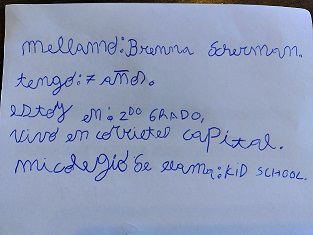 mellamo: Brenna Scherman.
tengo: 7 años.
estoy en: 2DO GRADO,
vivo en corrietes capital.
micolegio se llama: KID SCHOOL.